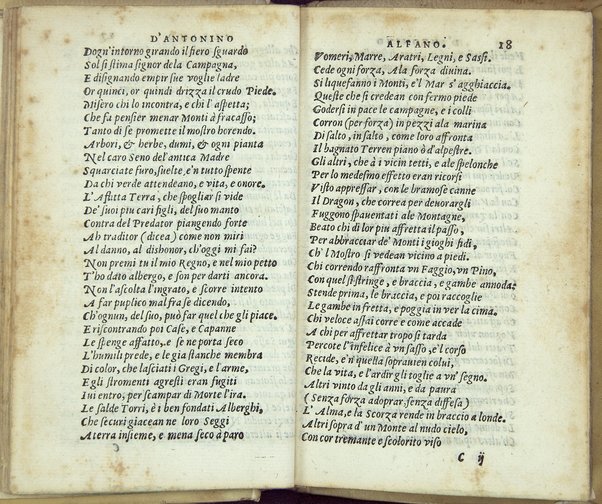 D'ANTONINO
Dogn'intorno girando il fiero sguardo
Sol si stima signor de la Campagna,
E disignando empir sue voglie ladre
Or quinci, or quindi drizza il crudo Piede.
Misero chi lo incontra, e chi l'aspetta;
Che fa pensier menar Monti à fracasso;
Tanto di se promette il mostro horendo.
Arbori, & herbe, dumi, & ogni pianta
Nel caro Seno del'antica Madre
Squarciate furo, suelte, e'n tutto spente
Da chi verde attendeano, e vita, e onore.
L'Aflitta Terra, che spogliar si vide
De' suoi piu cari figli, del suo manto
Contra del Predator piangendo forte
Ah traditor (dicea) come non miri
Al danno, al dishonor, ch'oggi mi fai?
Non premi tu il mio Regno, e nel mio petto
T'ho dato albergo, e son per darti ancora.
Non l'ascolta l'ingrato, e scorre intento
A far puplico mal fra se dicendo,
Ch'ognun, del suo, può far quel che gli piace.
E riscontrando poi Case, e Capanne
Le spenge affatto, e se ne porta seco
L'humili prede, e le gia stanche membra
Di color, che lasciati i Gregi, e l'arme,
E gli stromenti agresti eran fugiti
Iui entro, per scampar di Morte l'ira.
Le salde Torri, e i ben fondati Alberghi,
Che securi giacean ne loro Seggi
A terra insieme, e mena seco à paro
ALFANO. 18
Vomeri, Marre, Aratri, Legni, e Sassi.
Cede ogni forza, A la forza divina.
Si liquefanno i Monti, e'l Mar s'agghiaccia.
Queste che si credean con fermo piede
Godersi in pace le campagne, e i colli
Corron (per forza) in pezzi ala marina
Di salto, in salto, come loro affronta
Il bagnato Terren piano ò d'alpestre.
Gli altri, che à i vicin tetti, e ale spelonche
Per lo medesimo effetto eran ricorsi
Visto appressar, con le bramose canne
Il Dragon, che correa per devorargli
Fuggono spauentati ale Montagne,
Beato chi di lor piu affretta il passo,
Per abbracciar de' Monti i gioghi fidi,
Ch'l Mostro si vedean vicino a piedi.
Chi correndo raffronta vn Faggio, vn Pino,
Con quel si stringe, e braccia, e gambe annoda;
Stende prima, le braccia, e poi raccoglie
Le gambe in fretta, e poggia in ver la cima.
Chi veloce assai corre e come accade
A chi per affrettar tropo si tarda
Percote l'infelice à vn sasso, e'l corso
Recide, e'n quella soprauien colui,
Che la vita, e l'ardir gli toglie a vn' segno.
Altri vinto da gli anni, e da paura
(Senza forza adoprar, senza diffesa)
L'Alma, e la Scorza rende in braccio a londe.
Altri sopra d'un Monte al nudo cielo,
Con cor tremante e scolorito viso
C ij